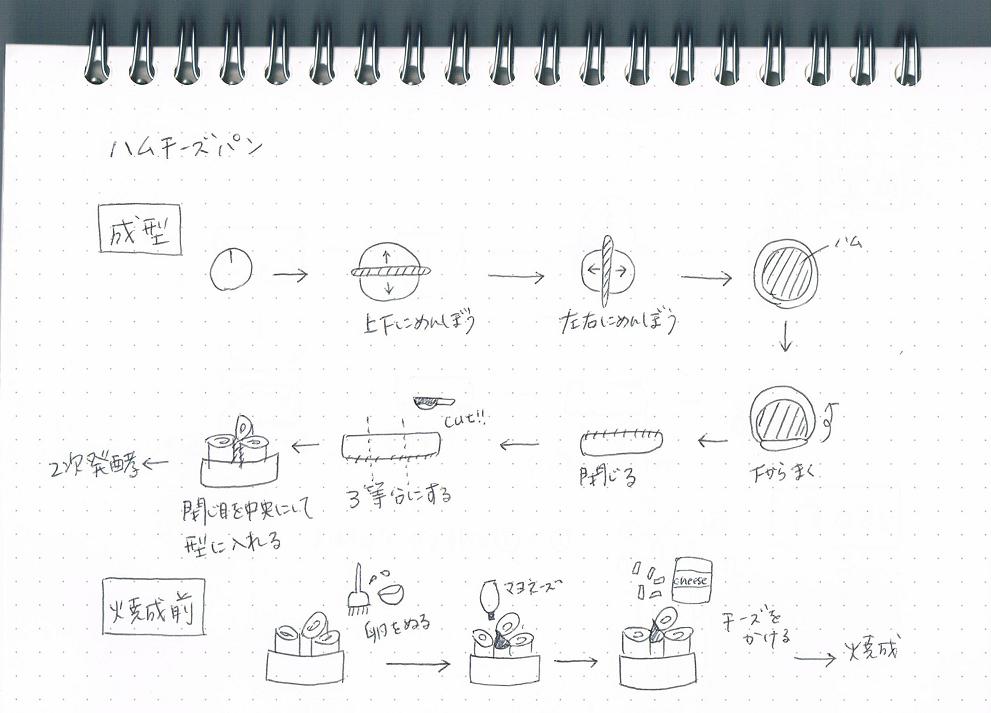 ハムチーズパン
成型
ハム
上下にめんぼう
左右にめんぼう
下からまく
閉じる
cut!!
3等分にする
閉じ目を中央にして
型に入れる
2次発酵
焼成前
卵をぬる
マヨネーズ
cheese
チーズを
かける
焼成